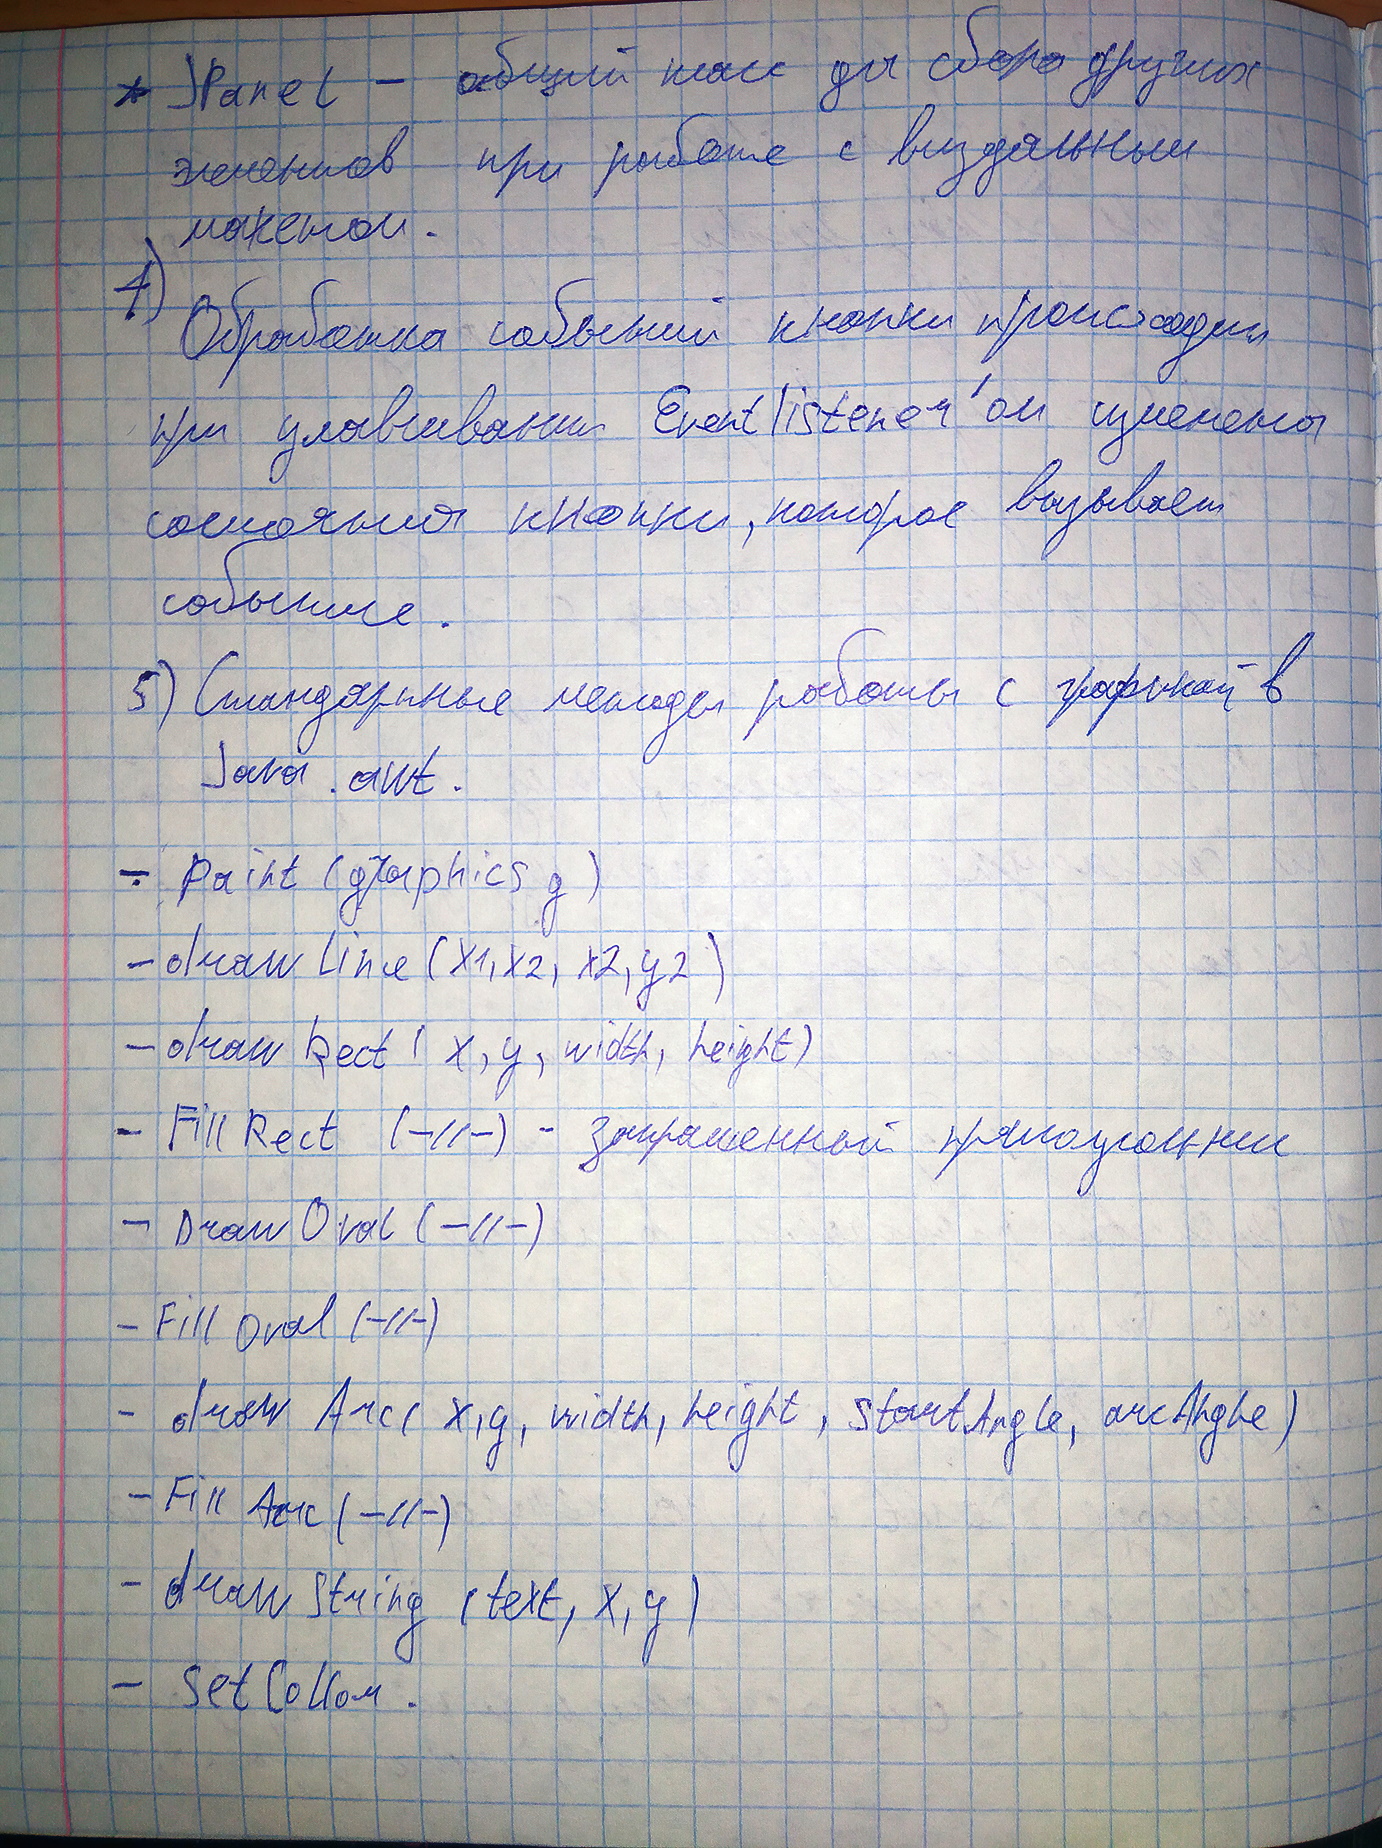 * JPanel – общий класс для сбора других
элементов при работе с визуальным
макетом.
4)
Обработка событий кнопки происходит
при улавливании Eventlistener'ом изменения
состояния кнопки, которое вызывает
событие.
5) Стандартные методы работы с графикой в
Java.awt.
- Paint (graphics g)
- draw Line (x1, x2, x2, y2)
- draw Rect ( x, y, width, height)
- Fill Rect (-//-) - закрашенный прямоугольник
- Draw Oval (-//-)
- Fill Oval (-//-)
- draw Arc( x, y, width, height, startAngle, arcAngle)
- Fill Arc (-//-)
- draw String (text, x, y)
- Set Collor.